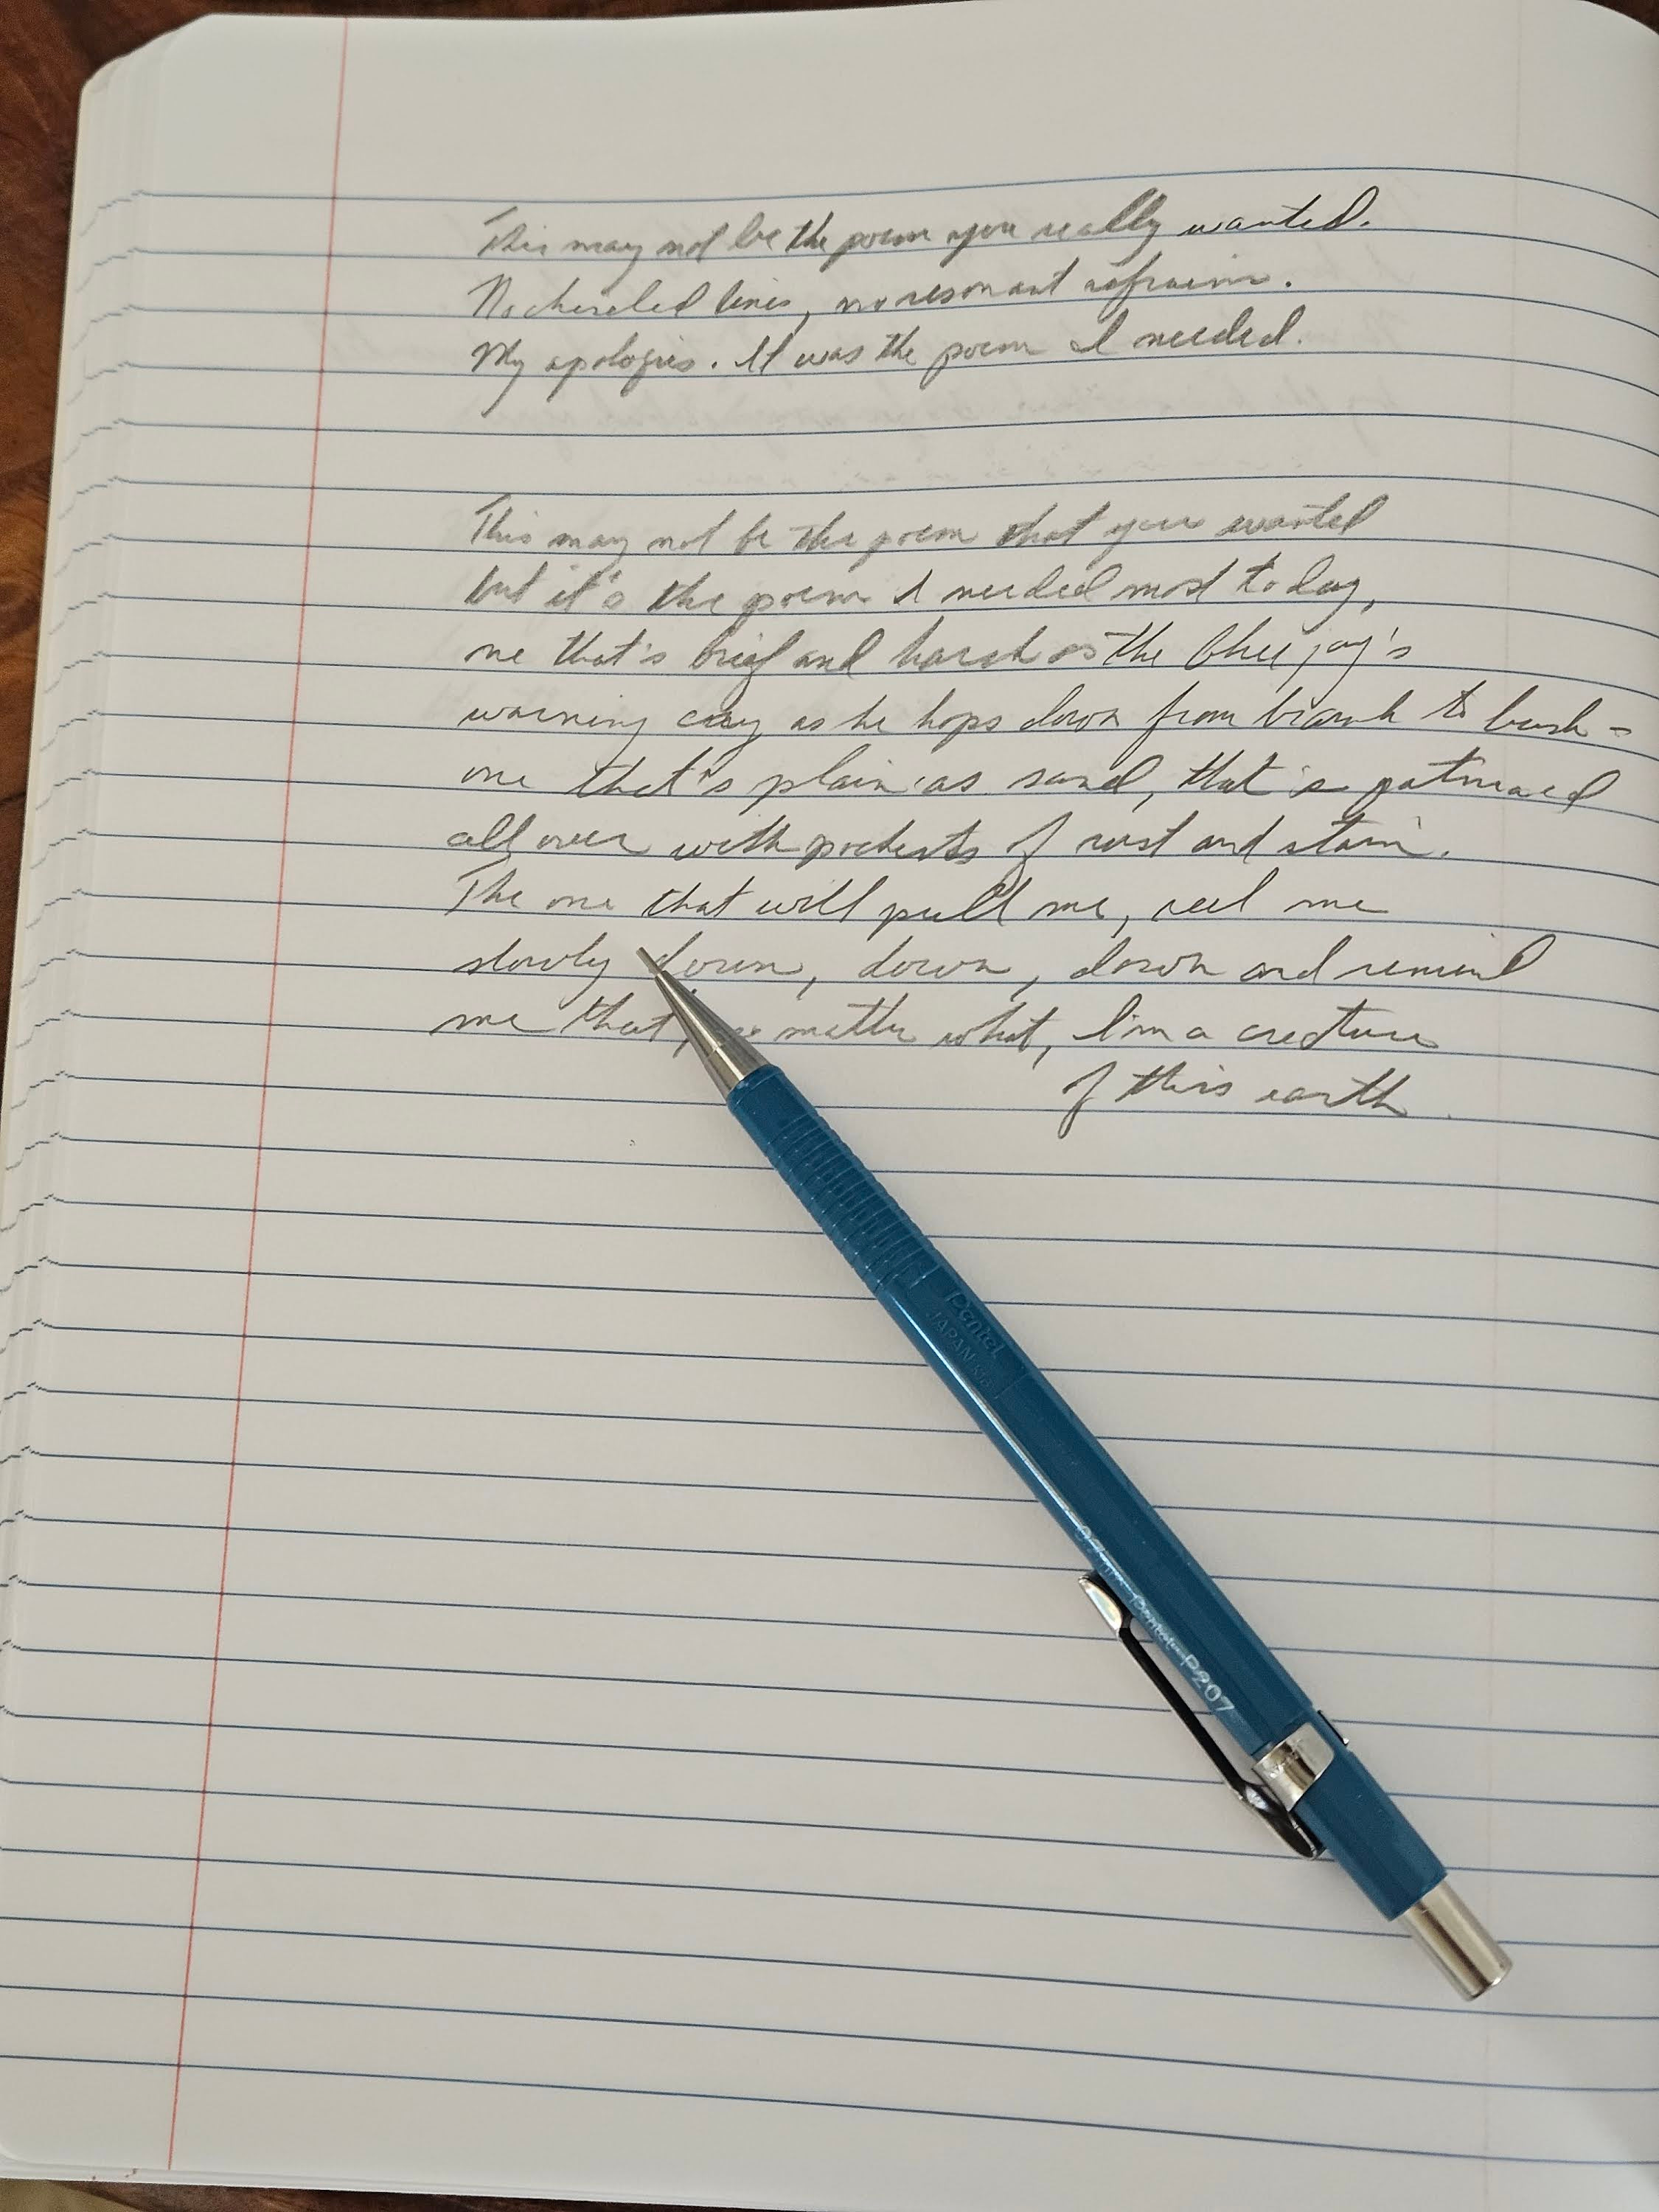 This may not be the poem you really wanted.
No chiseled lines, no resonant refrains.
My apologies. It was the poem I needed.
This may not be the poem that you wanted
but it's the poem I needed most today,
one that's brief and harsh as the blue jay's
warning cry as he hops down from branch to bush -
one that's plain as sand, that's patinaed
all over with portents of rust and stain.
The one that will pull me, reel me
slowly down, down, down and remind
me that, no matter what, I'm a creature
of this earth.
Pentel
JAPAN
0.7mm Pentel P207